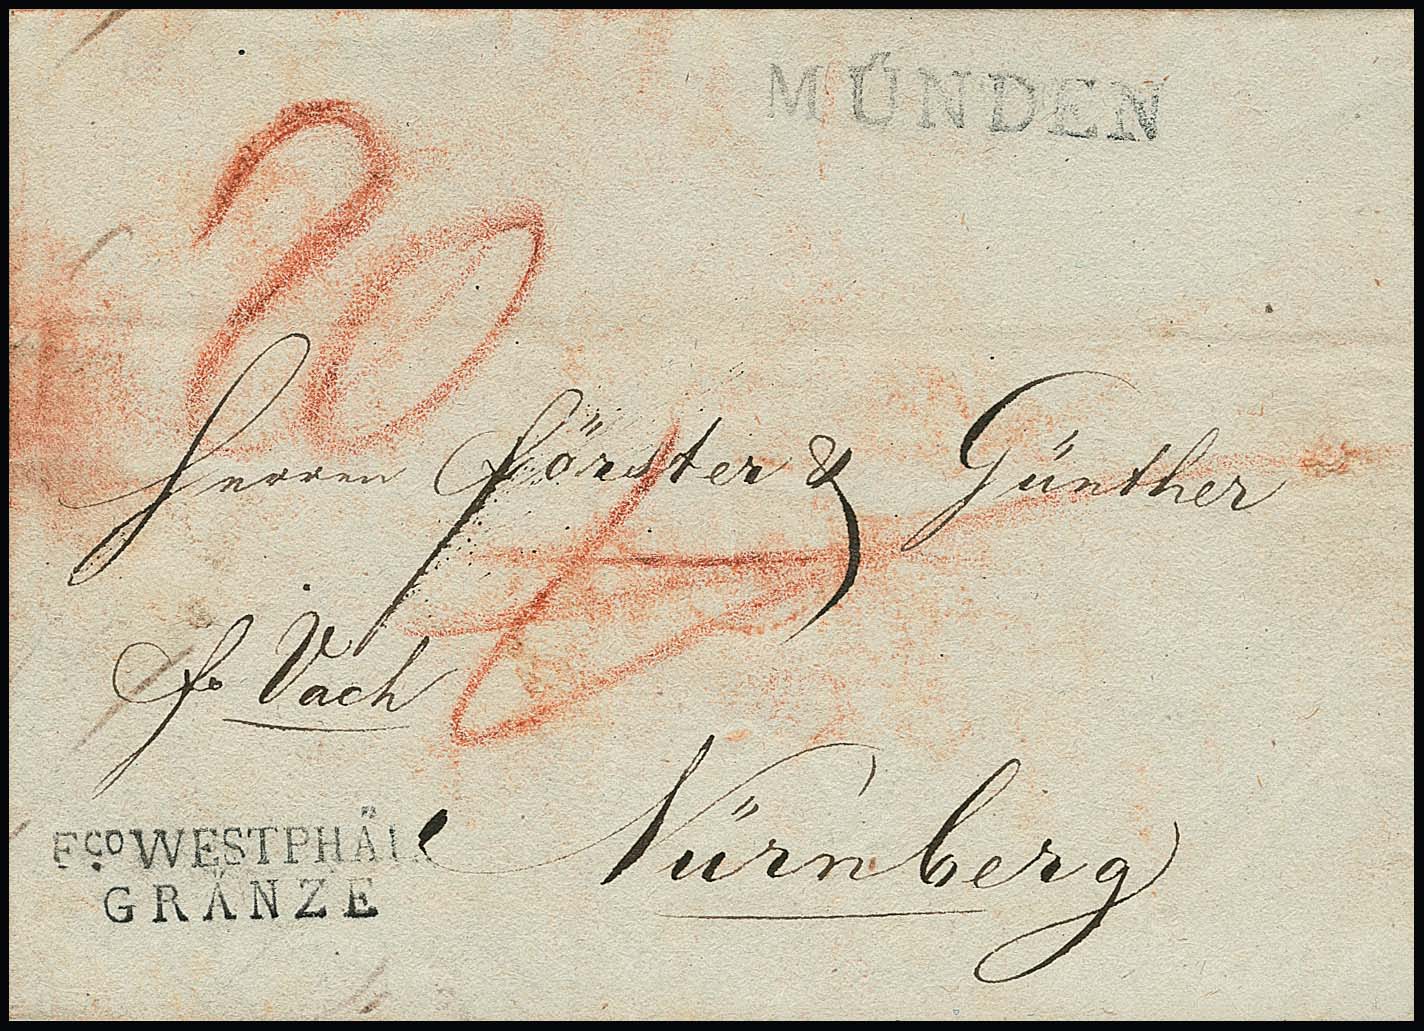 MÜNDEN
20
Herren Förster & Günther
fo Vach
Nürnberg
Fco WESTPHÄL
GRÄNZE